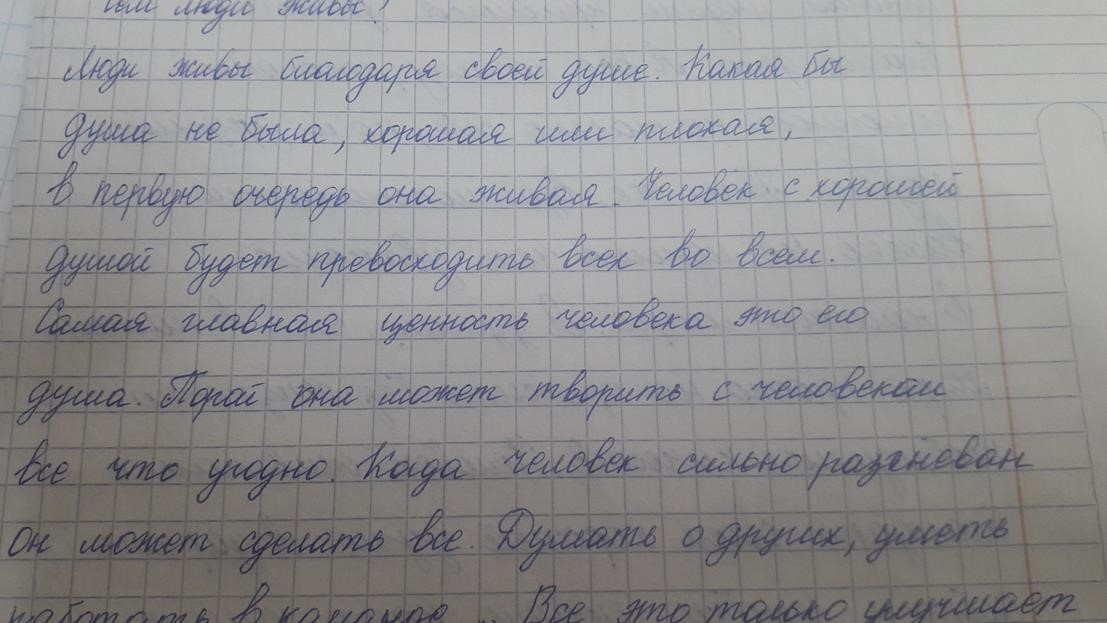 чем люди живы?
Люди живы благодаря своей душе. Какая бы
душа не была, хорошая или плохая,
в первую очередь она живая. Человек с хорошей
душой будет превосходить всех во всем.
Самая главная ценность человека это его
душа. Порой она может творить с человеком
все что угодно. Когда человек сильно разгневан
он может сделать все. Думать о других, уметь
работать в команде... Все это только улучшает